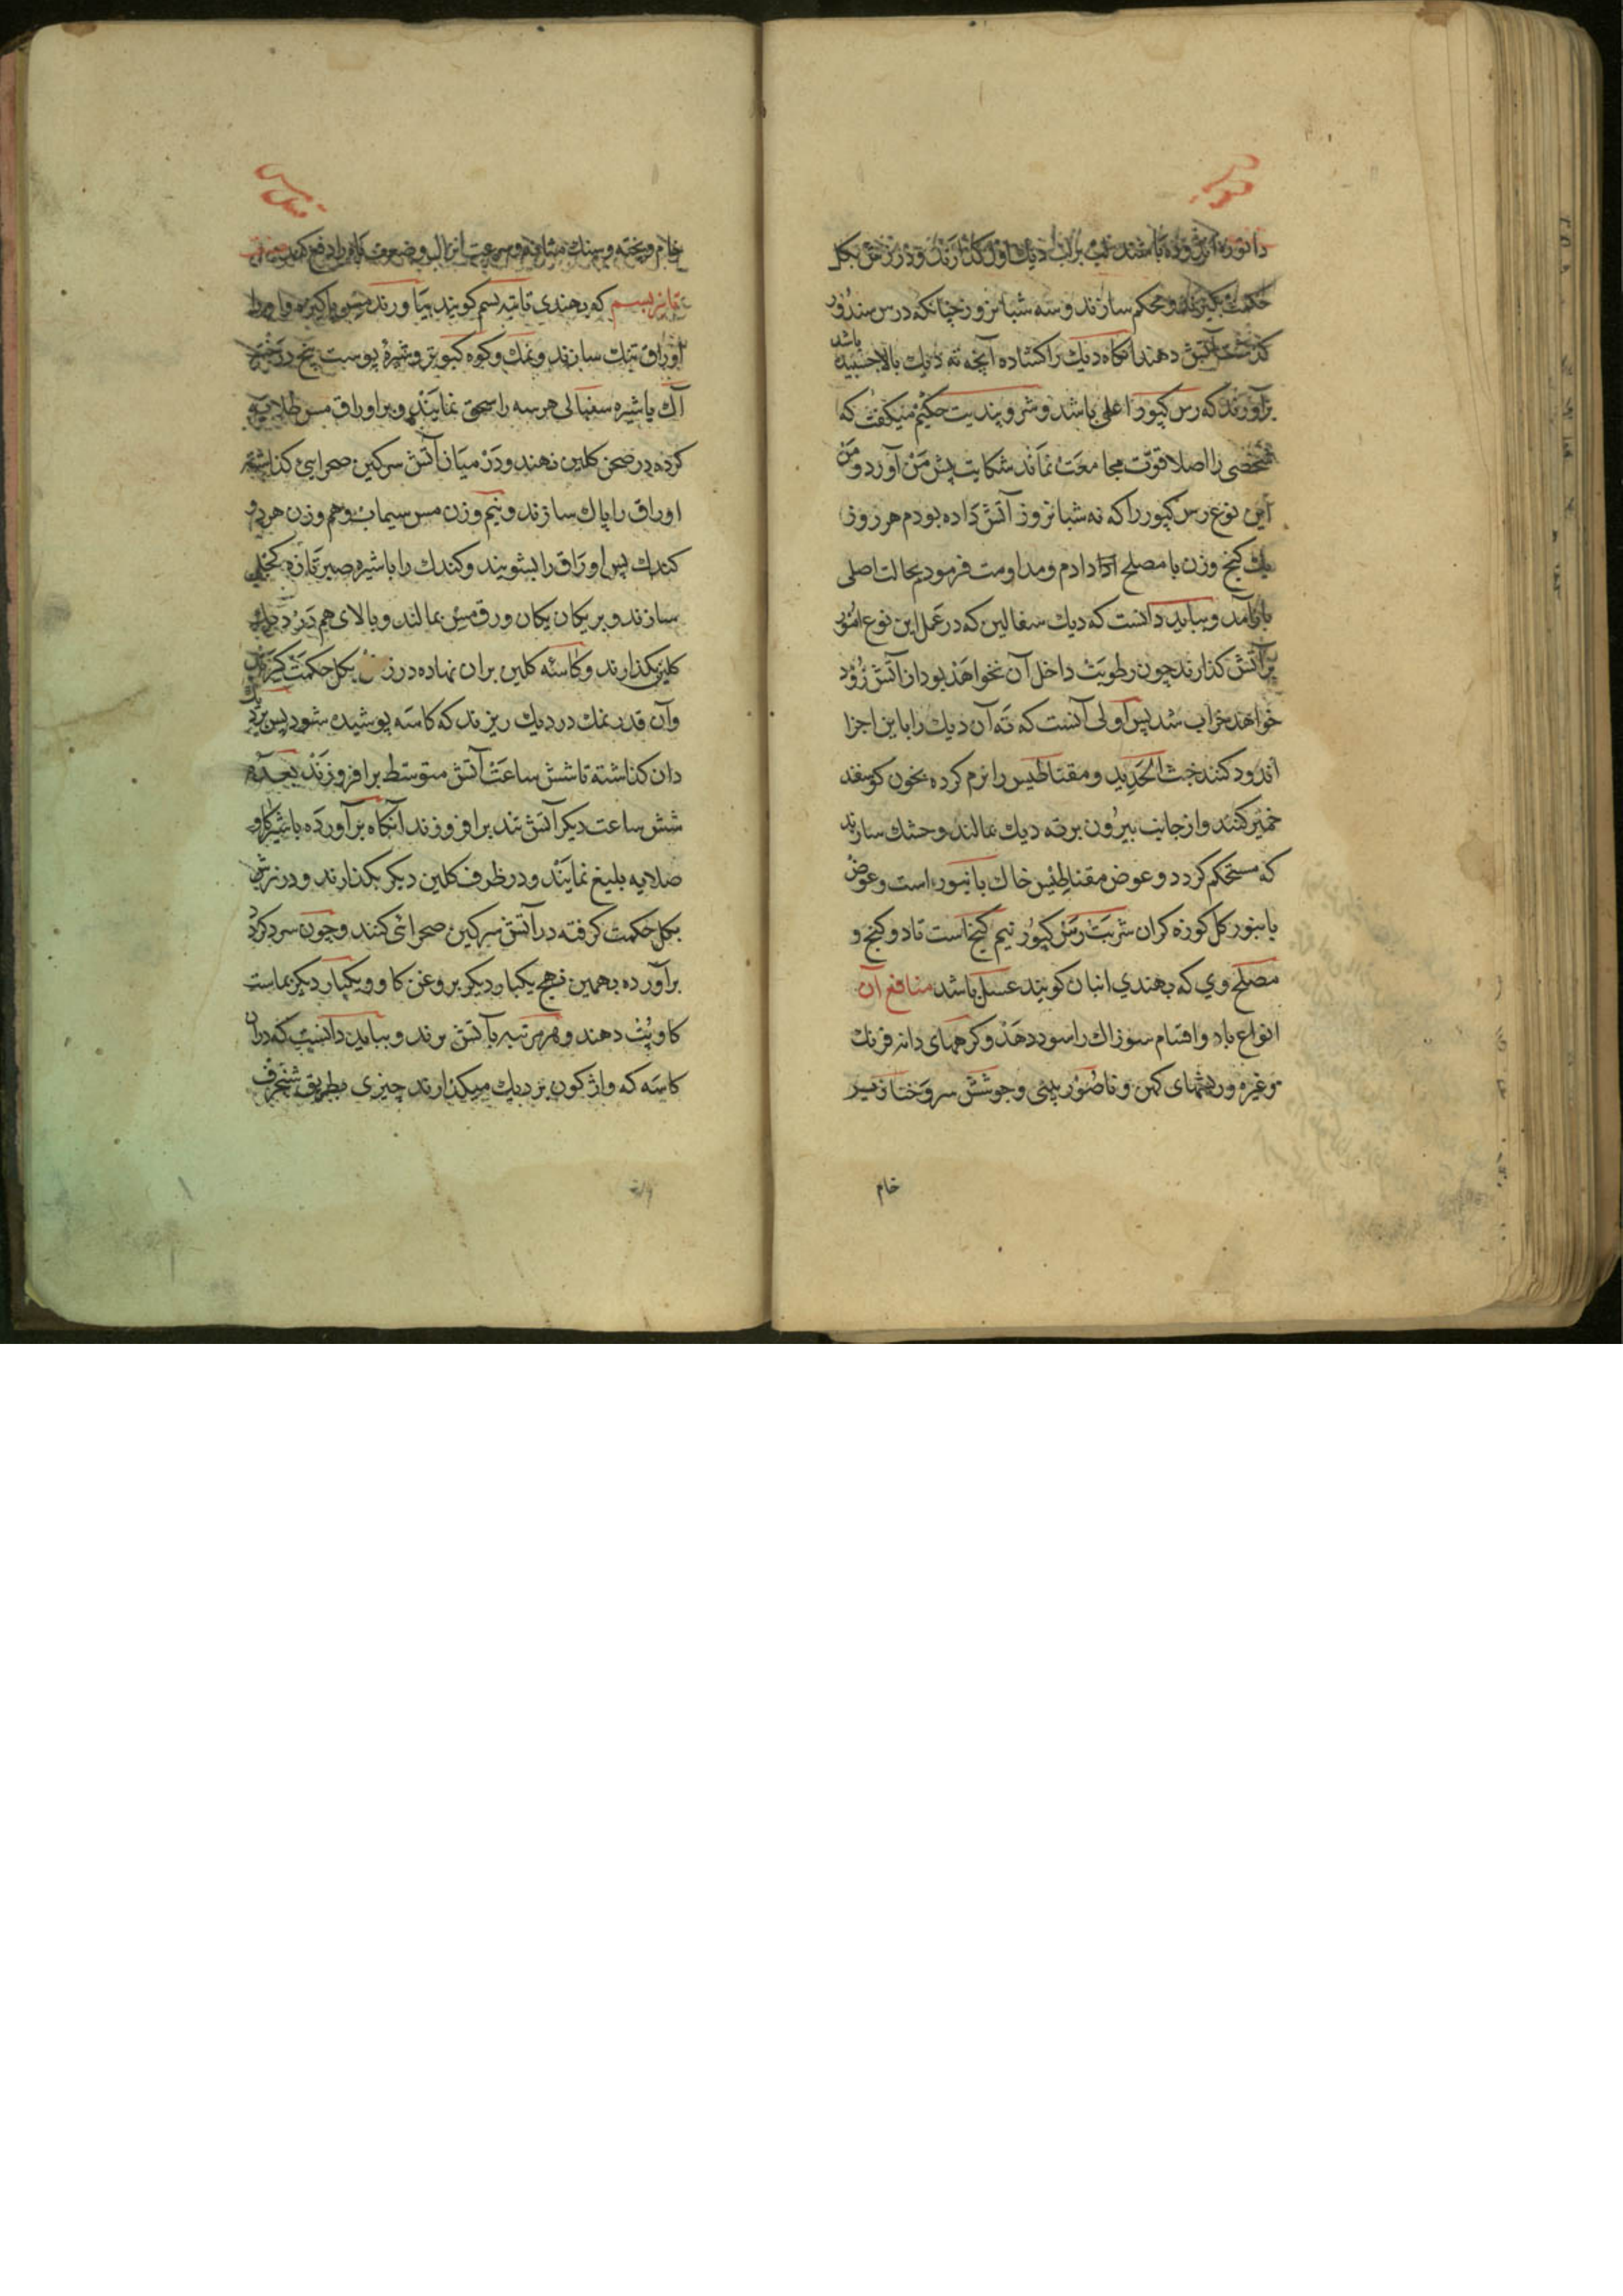 حکمت گیرند و محکم سازند و سه شبانروز چنانکه در رس سندور
گذشت آتش دهند آنگاه دیك را کشاده آنچه ته دیك بالا چسپیده باشد
برآورند که رس کپور اعلی باشد و شرو پندیت حکیم میکفت که
شخصی را اصلا قوت مجامعت نماند شکایت پیش من آورد و من
این نوع رس کپور را که نه شبانروز آتش داده بودم هر روز
یك کنج وزن با مصلح دادم و مداومت فرمود بحالت اصلی
باز آمد و بباید دانست که دیك سفالین که در عمل این نوع امور
بر آتش کذارند چون رطوبت داخل آن نخواهد بود از آتش زود
خواهد خراب شد پس اولی آنست که ته آن دیك را باین اجزا
اندود کنند خبث الحدید و مقناطیس را نرم کرده بخون کوسفند
خمیر کنند و از جانب بیرون بر ته دیك بمالند و خشك سازند
که مستحکم کردد و عوض مقناطیس خاك بانبور است و عوض
بانبور کل کوزه کران شربت رس کپور نیم کنج است تا دو کنج و
مصلح وی که بهندی انبان کویند عسل باشد منافع آن
انواع باد و اقسام سوزاك را سود دهد و کرههای دانه فرنك
وغیره و ریشهای کهن و ناصور بینی و جوشش سر و خنازیر
خام
خام و پخته و سنك مثانه و سرعت انزال و ضعف باه را دفع کند
تانبر بسم که بهندی تانبه بسم کویند بیاورند مس پاکیزه و او را
اوراق تنك سازند و نمك و کوه کبوتر و شیرهٔ پوست بیخ درخت
آك یا شیره سنبالی هر سه را سحق نمایند و بر اوراق مس طلا
کرده در صحن کلین نهند و در میان آتش سرکین صحرایی کذاشته
اوراق را پاك سازند و نیم وزن مس سیماب و هم وزن هر دو
کندك پس اوراق را بشویند و کندك را با شیره صبر تازه کجلی
سازند و بر یکان یکان ورق مس بمالند و بالای هم در دیك
کلین بکذارند و کاسه کلین بران نهاده درز بکل حکمت کیرند
و آن قدر نمك در دیك ریزند که کاسه پوشیده شود پس بر دیك
دان کذاشته تا شش ساعت آتش متوسط برافروزند بعده
شش ساعت دیکر آتش تند برافروزند آنکاه برآورده با شیر کاو
صلایه بلیغ نمایند و در ظرف کلین دیکر بکذارند و درزش
بکل حکمت کرفته در آتش سرکین صحرائی کنند و چون سرد کردد
برآورده بهمین نهج یکبار دیکر بروغن کاو و یکبار دیکر بماست
کاو پٹ دهند و هر مرتبه بآتش برند و بباید دانست که دران
کاسه که واژکون بر دیك میکذارند چیزی بطریق شنجرف